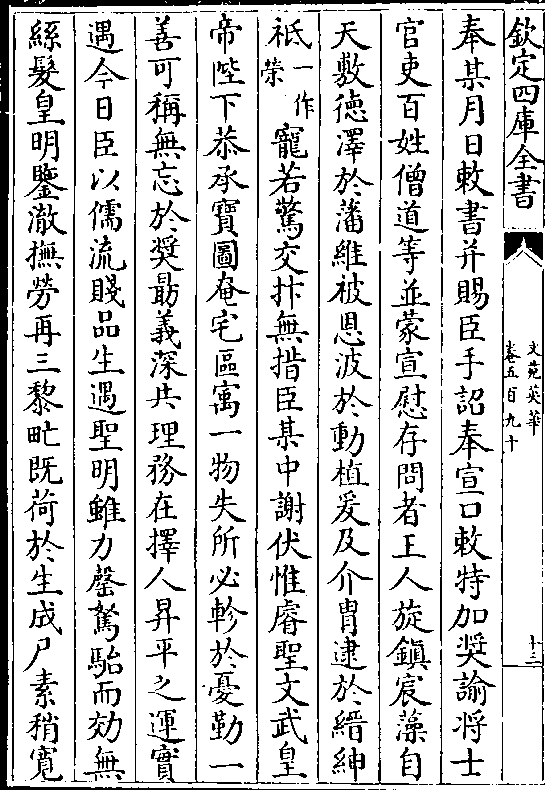 欽定四庫全書
奉某月日敕書并賜臣手詔奉宣口敕特加奬諭将士
官吏百姓僧道等並蒙宣慰存問者王人旋鎮宸藻自
天敷徳澤於藩維被恩波於動植爰及介胄逮於縉紳
祇一作榮寵若驚交抃無措臣某中謝伏惟睿聖文武皇
帝陛下恭承寶圖奄宅區寓一物失所必軫於憂勤一
善可稱無忘於奬勗義深共理務在擇人昇平之運實
遇今日臣以儒流賤品生遇聖明雖力罄駑駘而効無
絲髮皇明鑒澈撫勞再三黎甿既荷於生成尸素稍寛
文苑英華
卷五百九十
十三